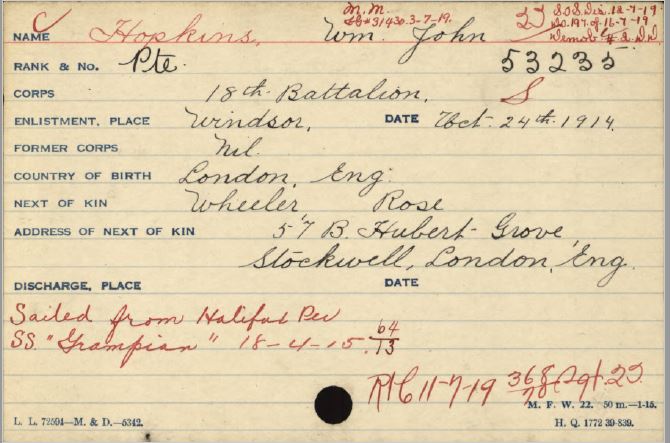 C M.M. 23 S.O.S. Dis. 12-7-19.
LG #31430. 3-7-19. D.O. 197. of 16-7-19
NAME Hopkins, Wm. John Demob. 4. D.D.
RANK & No. Pte. 53235
CORPS 18th Battalion. S
ENLISTMENT, PLACE Windsor, DATE Oct. 24th. 1914.
FORMER CORPS Nil.
COUNTRY OF BIRTH London, Eng.
NEXT OF KIN Wheeler, Rose
ADDRESS OF NEXT OF KIN 57 B. Hubert Grove,
Stockwell, London, Eng.
DISCHARGE, PLACE DATE
Sailed from Halifax Per
SS. "Grampian" 18-4-15. 64/13
R/C 11-7-19 368
M. F. W. 22. 50 m.—1-15.
L. L. 72594—M. & D.—5342. H. Q. 1772 39-839.